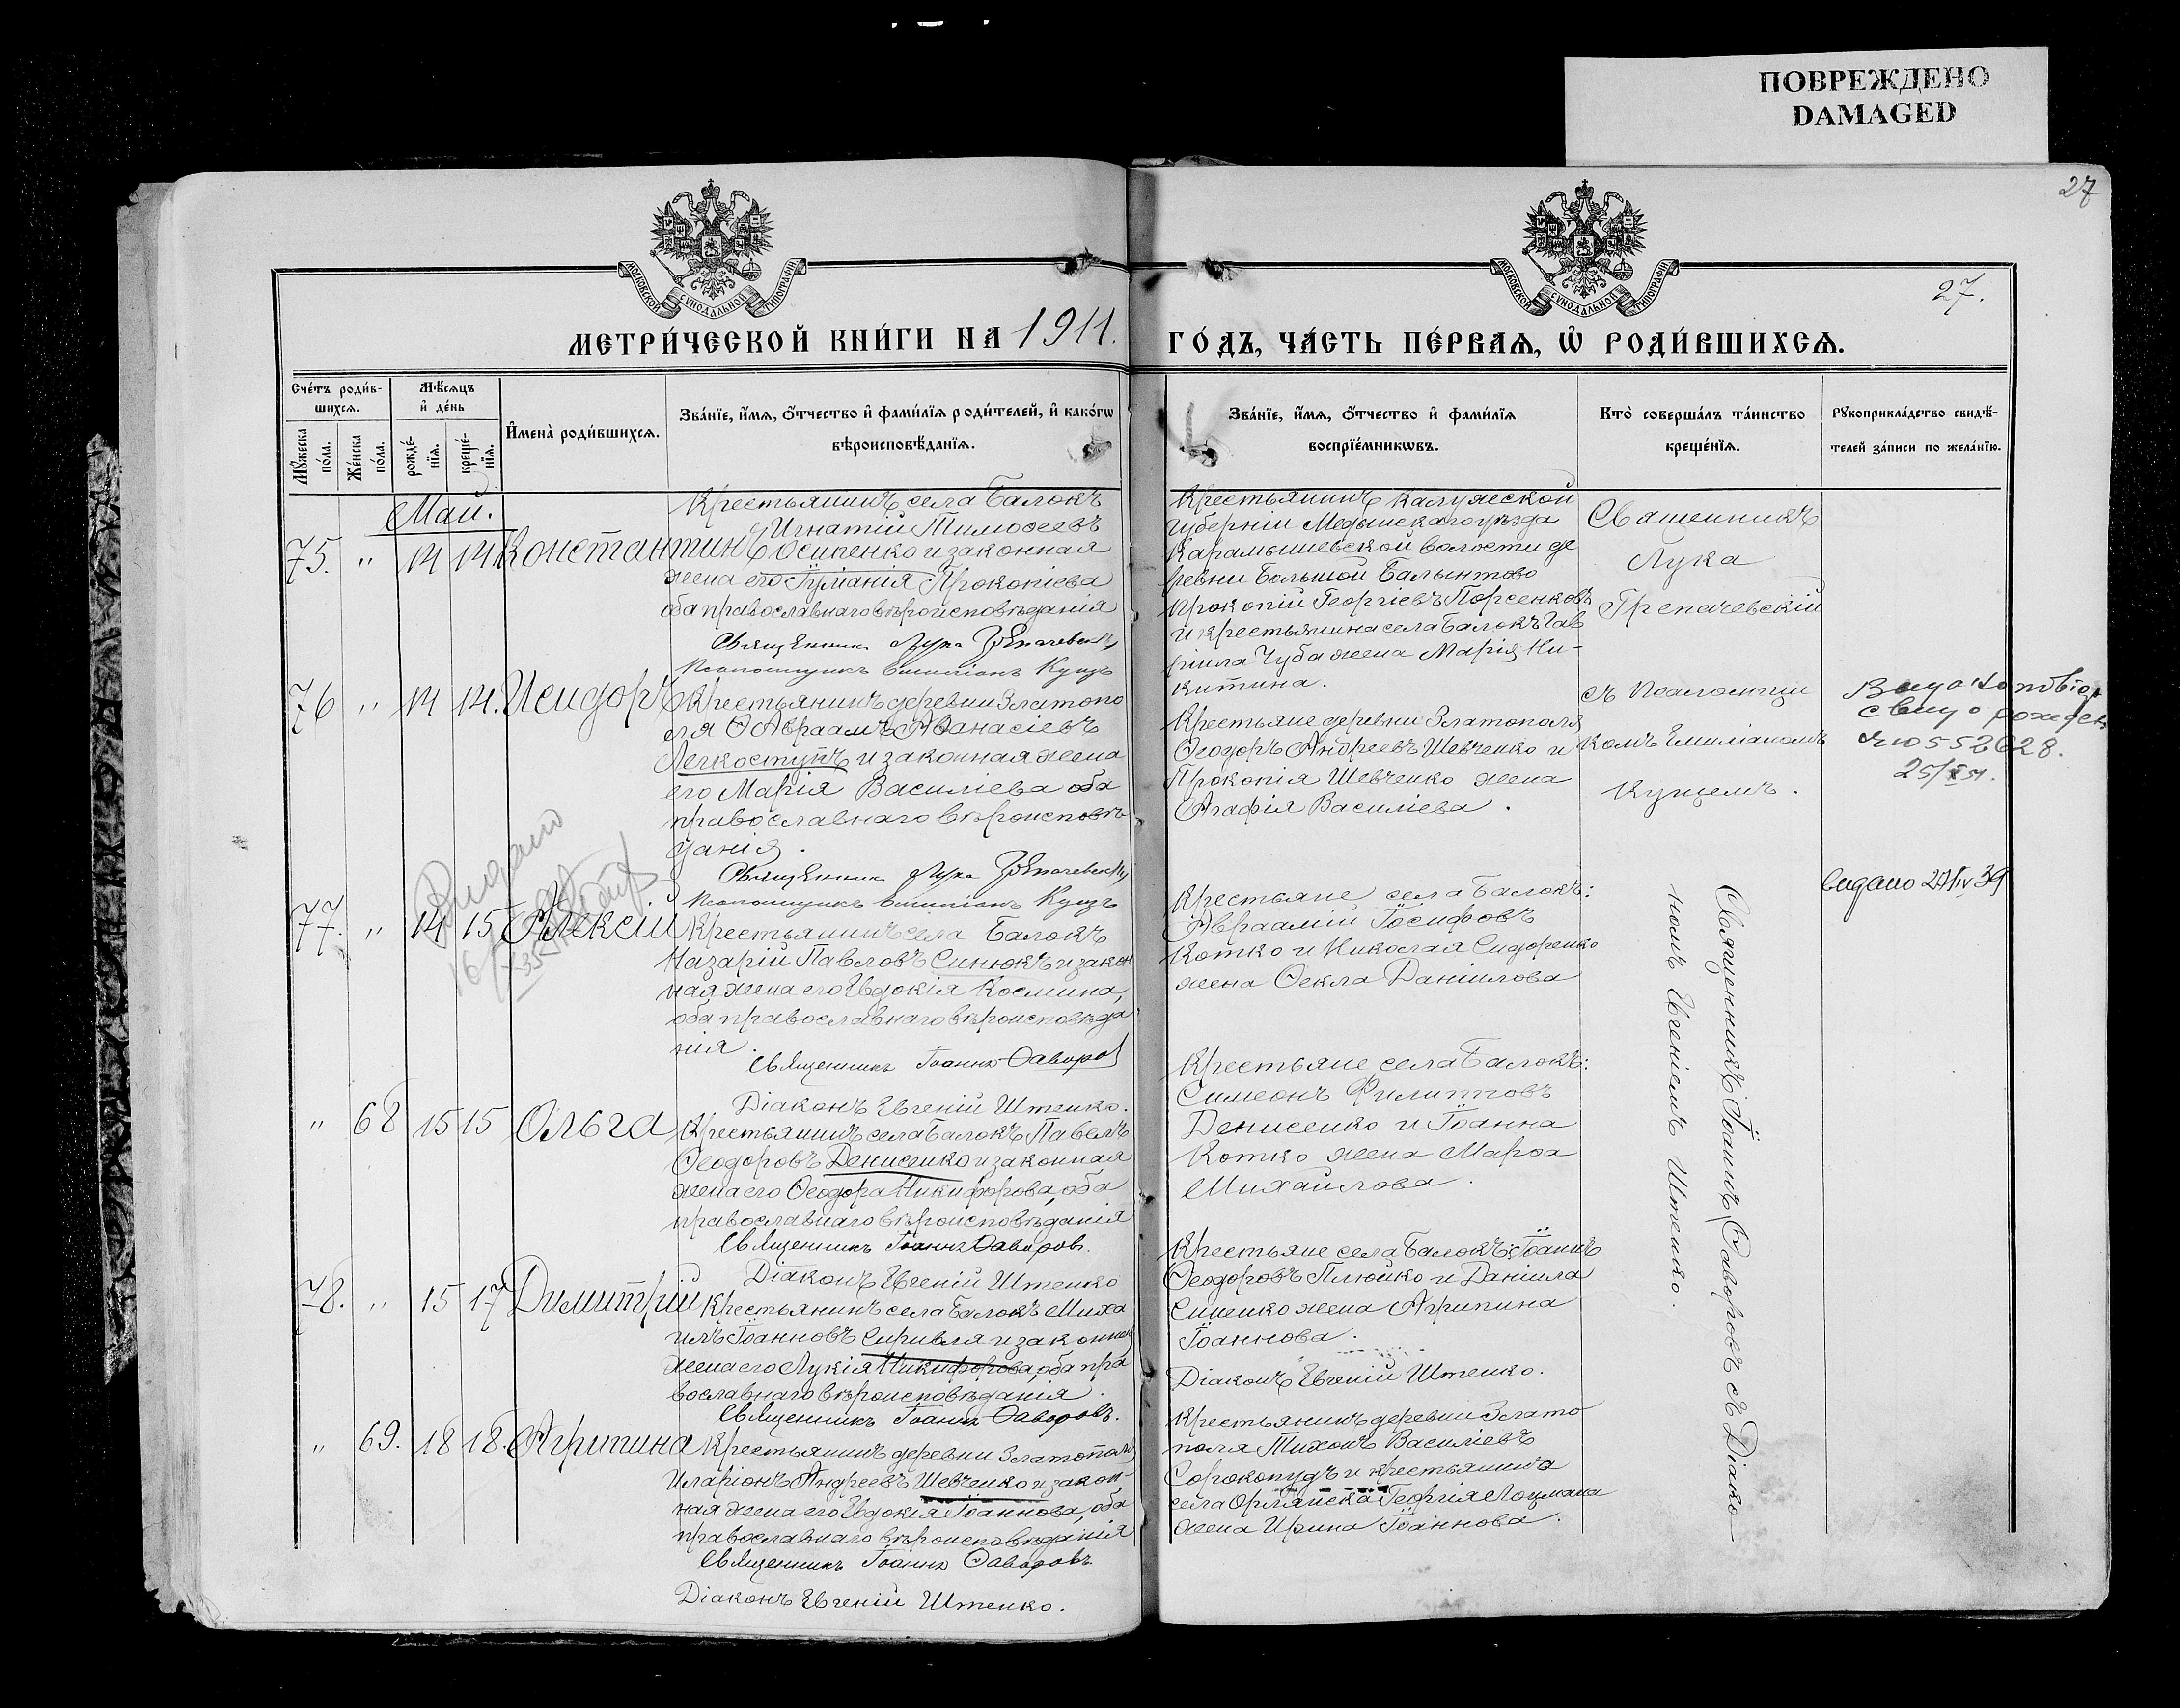 ПОВРЕЖДЕНО
DAMAGED
27
27.
МЕТРИ́ЧЕСКОЙ КНИ́ГИ НА 1911. ГО́ДЪ, ЧА́СТЬ ПЕ́РВАѦ, Ѽ РОДИ́ВШИХСѦ.
МОСКОВСКОЙ СѴНОДАЛЬНОЙ ТИПОГРАФІИ
МОСКОВСКОЙ СѴНОДАЛЬНОЙ ТИПОГРАФІИ
Счéтъ роди́в-
шихсѧ.
Мꙋ́жеска
по́ла.
Жéнска
по́ла.
Мѣ́сѧцъ
и҆ дéнь
рождé-
нїѧ.
крещé-
нїѧ.
И҆мена̀ роди́вшихсѧ.
Зва́нїе, и҆́мѧ, ѻ҆́тчество и҆ фами́лїѧ роди́телей, и҆ како́гѡ
вѣроисповѣ́данїѧ.
Зва́нїе, и҆́мѧ, ѻ҆́тчество и҆ фами́лїѧ
воспрїéмникѡвъ.
Кто̀ соверша́лъ та́инство
крещéнїѧ.
Рꙋкоприкла́дство свидѣ́-
телей за́писи по жела́нїю.
Май.
75. " 14 14 Константинъ
Крестьянинъ села Балокъ
Игнатій Тимоѳеевъ
Осипенко и законная
жена его Іуліанія Прокопіева
оба православнаго вѣроисповѣданія
Священникъ Лука
Псаломщикъ Емиліанъ Куцъ
Крестьянинъ Калужеской
губерніи Медынскаго уѣзда
Карамышевской волости де
ревни Большой Балынтово
Прокопій Георгіевъ Порсенковъ
и крестьянина села Балокъ Гав
ріила Чуба жена Марія Ни-
китина.
Священникъ
Лука
76 " 14 14. Исидоръ
Крестьянинъ деревни Златопо
ля Авраамъ Аѳанасіевъ
Легкоступъ и законная жена
его Марія Василіева оба
православнаго вѣроисповѣ
данія.
Священникъ Лука
Псаломщикъ Емиліанъ Куцъ
Крестьяне деревни Златополя
Ѳеодоръ Андреевъ Шевченко и
Прокопія Шевченко жена
Агафія Василіева.
съ Псаломщи
комъ Емиліаномъ
Куцемъ.
552628.
77. " 14 15 Алексій
Крестьянинъ села Балокъ
Назарій Павловъ Синюкъ и закон
ная жена его Евдокія Космина,
оба православнаго вѣроисповѣда
нія.
Священникъ Іоаннъ Ѳаворов
Діаконъ Евгеній Штенко.
Крестьяне села Балокъ:
Авраамій Іосифовъ
Котко и Николая Сидоренко
жена Ѳекла Даніилова
Видано
видано 27/IV 39
Священникъ Іоаннъ Ѳаворовъ съ Діако-
номъ Евгеніемъ Штенко.
" 68 15 15 Ольга
Крестьянинъ села Балокъ Павелъ
Ѳеодоровъ Денисенко и законная
жена его Ѳеодора Никифорова, оба
православнаго вѣроисповѣданія
Священникъ Іоаннъ Ѳаворов.
Діаконъ Евгеній Штенко
Крестьяне села Балокъ:
Симеонъ Филипповъ
Денисенко и Іоанна
Котко жена Марѳа
Михайлова.
78. " 15 17 Димитрій
Крестьянинъ села Балокъ Миха
илъ Іоанновъ Сиривля и законная
жена его Лукія Никифорова, оба пра
вославнаго вѣроисповѣданія.
Священникъ Іоаннъ Ѳаворовъ.
Крестьяне села Балокъ: Іоаннъ
Ѳеодоровъ Плюйко и Даніила
Синенко жена Агрипина
Іоаннова.
Діаконъ Евгеній Штенко.
" 69. 18 18. Агрипина
Крестьянинъ деревни Златополя
Иларіонъ Андреевъ Шевченко и закон-
ная жена его Евдокія Іоаннова, оба
православнаго вѣроисповѣданія
Священникъ Іоаннъ Ѳаворовъ
Діаконъ Евгеній Штенко.
Крестьянинъ деревни Злато
поля Тихонъ Василіевъ
Сорокопудъ и крестьянина
села Орлянска Георгія Лоцмана
жена Ирина Іоаннова.